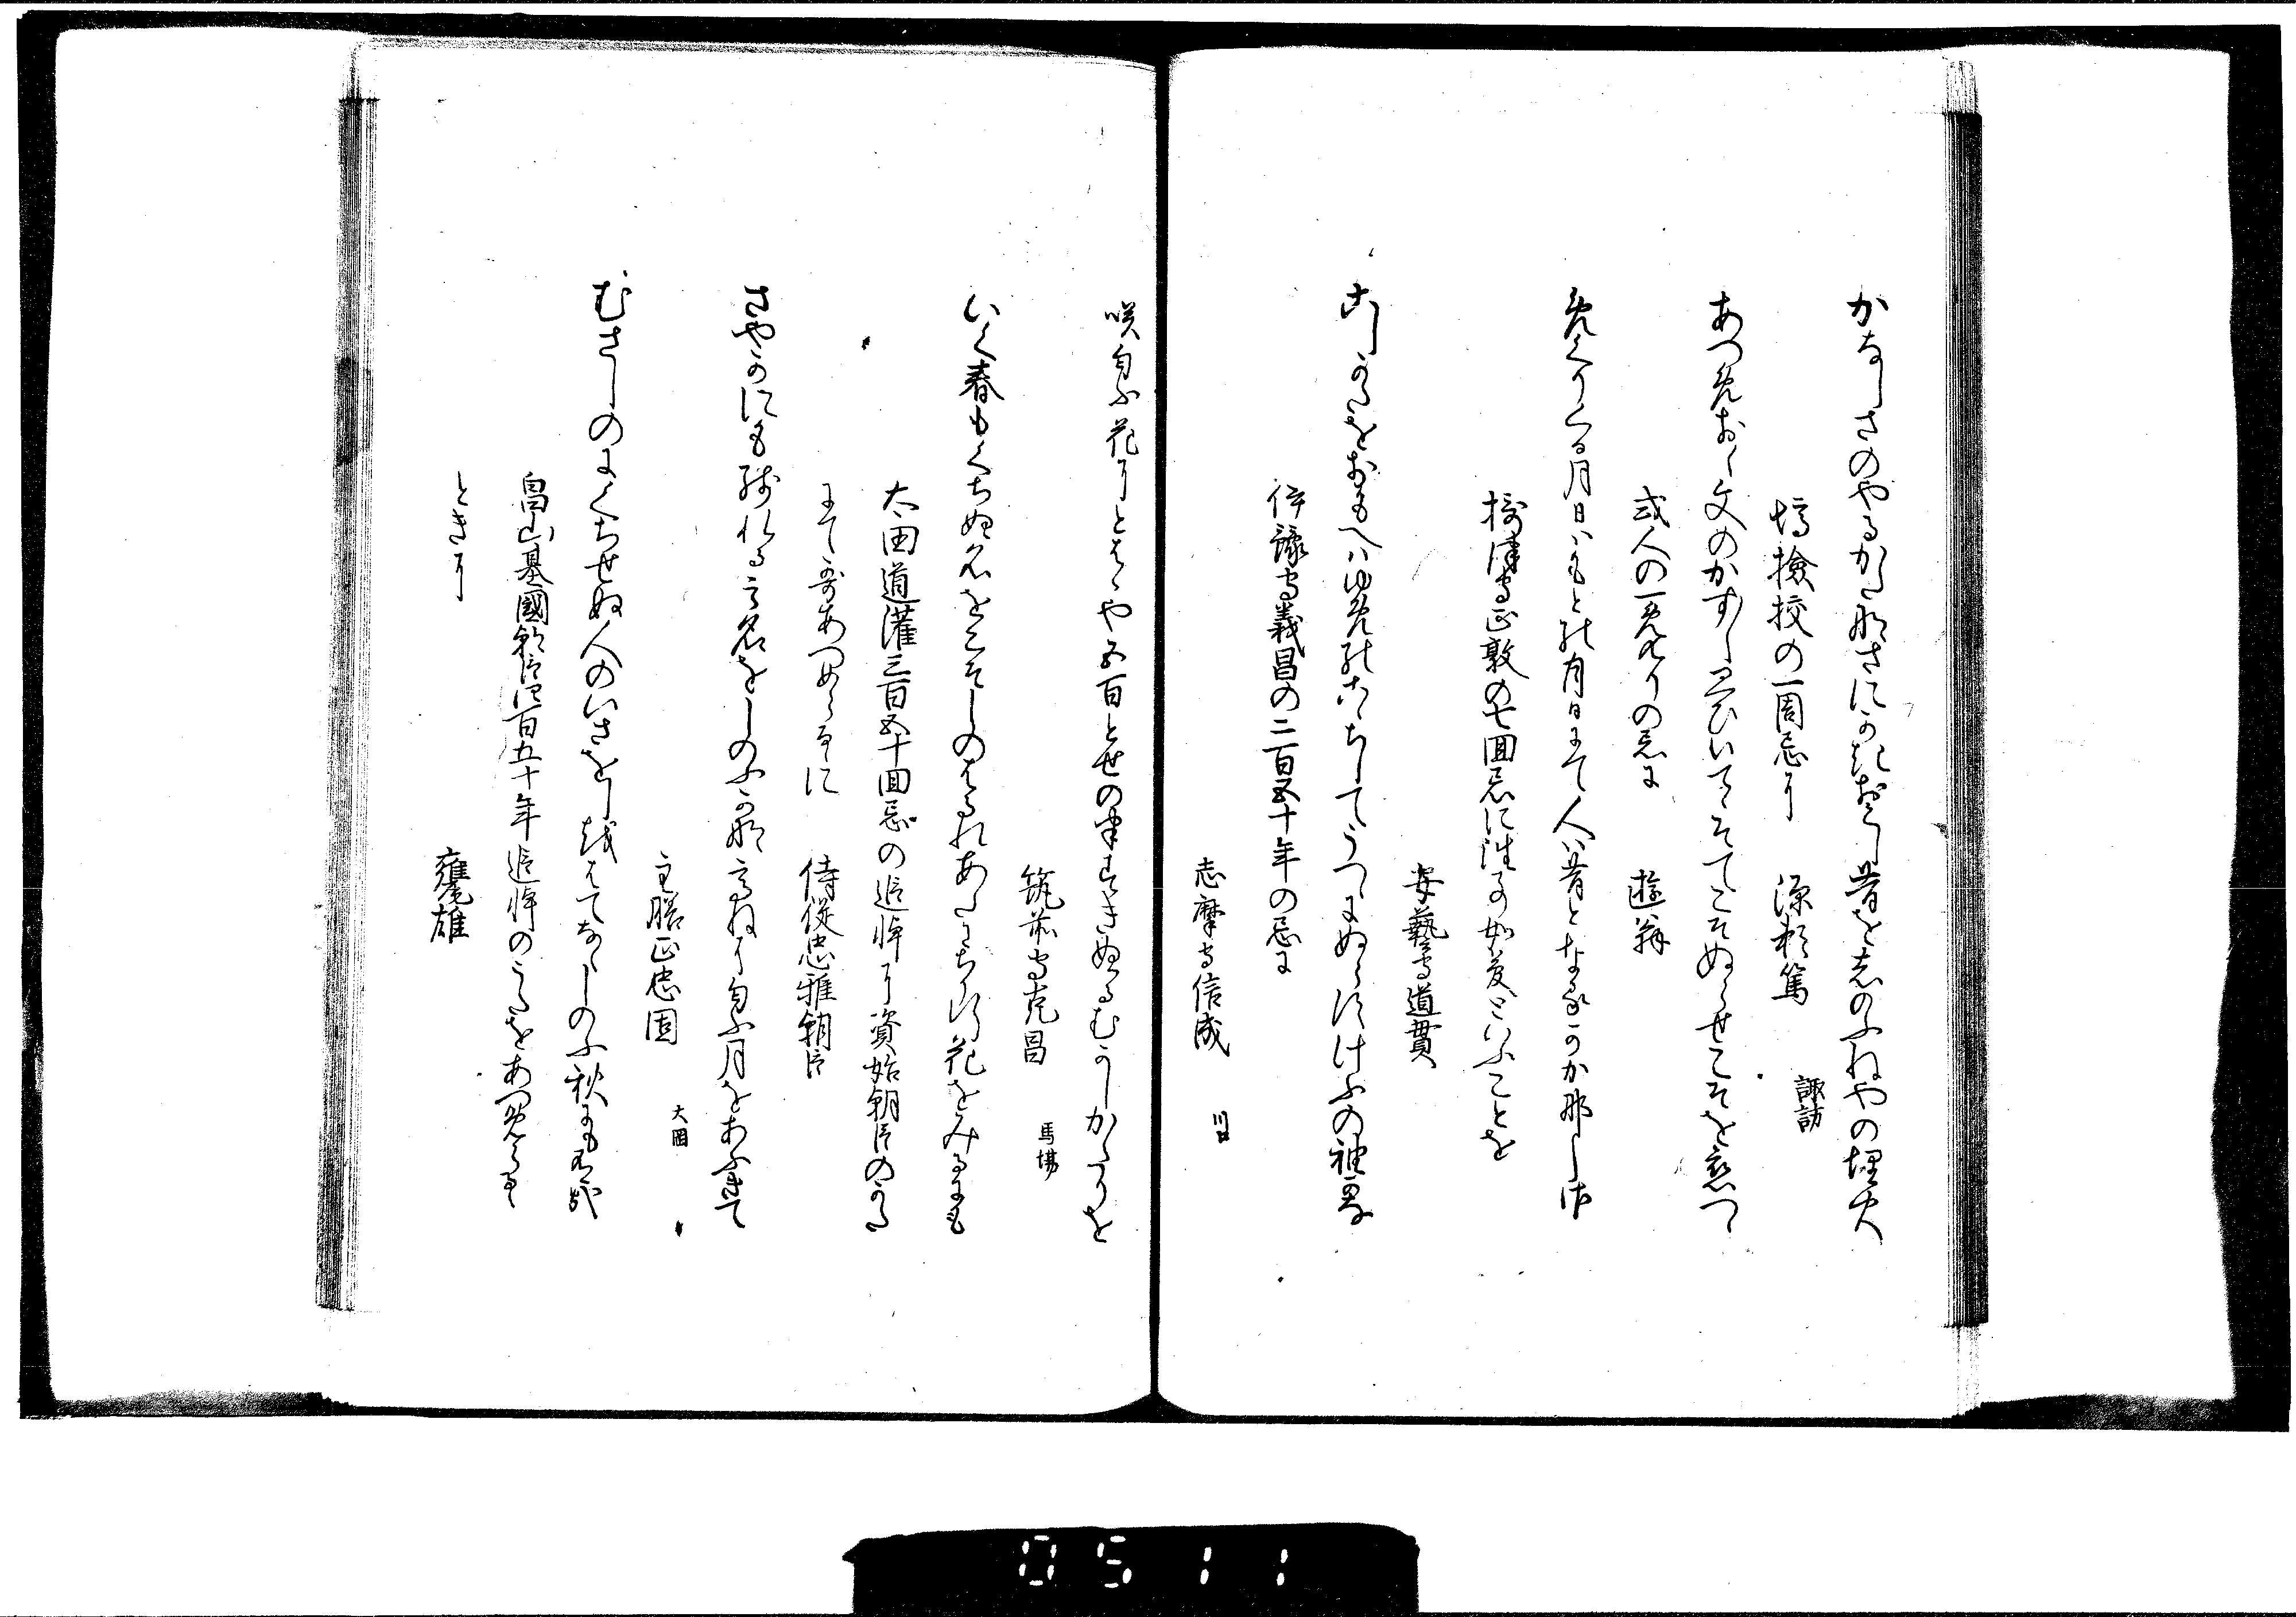 かなしさのやるかたなさにかきおこし昔を志のふねやの埋火
塙撿挍の一周忌に 源頼篤 諏訪
あつめおく文のかす〳〵思ひいてゝそてこそぬらせこそを恋つゝ
或人の一めくりの忌に 遊翁
めくりくる月日はもとの月日にて人は昔となるそかなしき
摂津守正敦の七回忌に往事如夢といふことを
安藝守道貫
こしかたをおもへはゆめのこゝちしてうつゝにぬらすけふの袖
伊豫守義昌の二百五十年の忌に
志摩守信成
咲匂ふ花にとはゝや五百とせの
筑前守克昌 馬場
いく春もくちぬ名をこそしのはるれあたにちり行花をみるにも
太田道灌三百五十回忌の追悼に資始朝臣のかた
にて哥あつめらるに 侍従忠雅朝臣
さやかにも残れる高名をしのふかな高ねに匂ふ月をあふきて
主膳正忠固 大岡
むさしのにくちせぬ人のいさをしをはてなくしのふ秋にも有哉
畠山基國朝臣四百五十年追悼のうたをあつめらるゝ
ときに 甕雄
0511